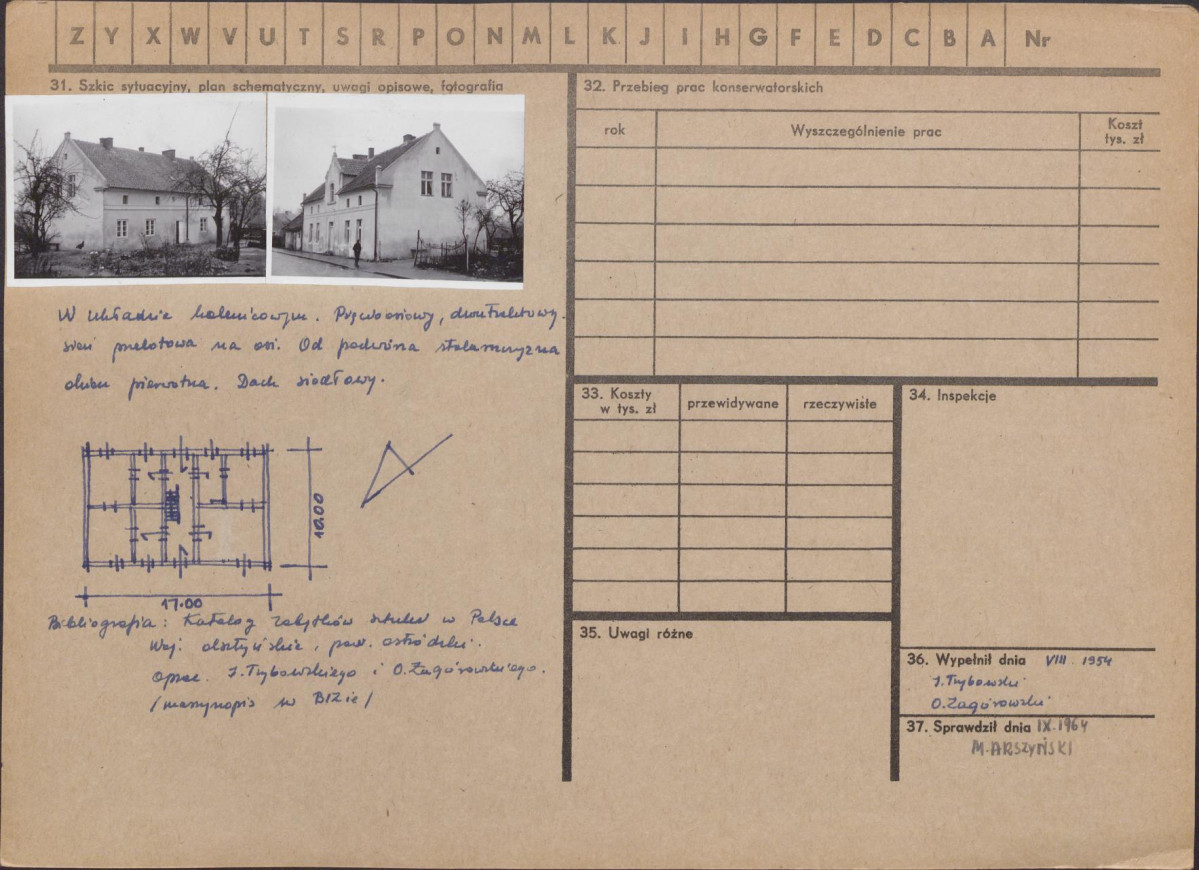 Z Y X W V U T S R P O N M L K J I H G F E D C B A Nr
31. Szkic sytuacyjny, plan schematyczny, uwagi opisowe, fotografia
W układzie kalenicowym. Pięcioosiowy, dwutraktowy.
sień przelotowa na osi. Od podwórza stolarszczyzna
okien pierwotna. Dach siodłowy.
10.00
17.00
Bibliografia: Katalog zabytków sztuki w Polsce
Woj. olsztyńskie, pow. ostródzki.
Oprac. J. Trybowskiego i O. Zagórowskiego.
/maszynopis w
32. Przebieg prac konserwatorskich
rok
Wyszczególnienie prac
Koszt
tys. zł
33. Koszty
w tys. zł
przewidywane
rzeczywiste
34. Inspekcje
35. Uwagi różne
36. Wypełnił dnia VIII. 1954
J. Trybowski
O. Zagórowski
37. Sprawdził dnia IX.1964
M. ARSZYŃSKI